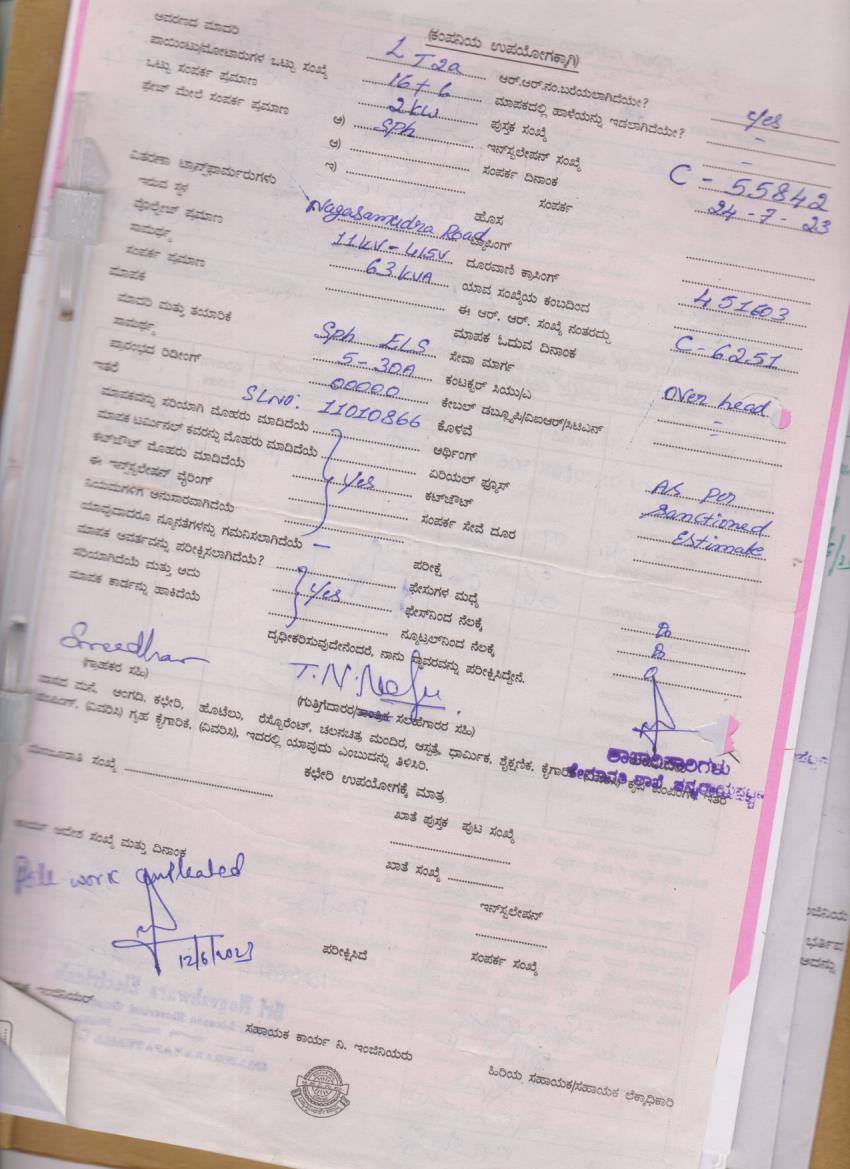 (ಕಂಪನಿಯ ಉಪಯೋಗಕ್ಕಾಗಿ)
ಆವರಣದ ಮಾದರಿ LT2a ಆರ್.ಆರ್.ನಂ.ಬರೆಯಲಾಗಿದೆಯೇ? yes
ಪಾಯಿಂಟು/ಮೋಟಾರುಗಳ ಒಟ್ಟು ಸಂಖ್ಯೆ 16+6 ಮಾಪಕದಲ್ಲಿ ಹಾಳೆಯನ್ನು ಇಡಲಾಗಿದೆಯೇ? -
ಒಟ್ಟು ಸಂಪರ್ಕ ಪ್ರಮಾಣ 2kW ಪುಸ್ತಕ ಸಂಖ್ಯೆ -
ಫೇಜ್ ಮೇಲೆ ಸಂಪರ್ಕ ಪ್ರಮಾಣ ಅ) Sph ಇನ್‌ಸ್ಟಲೇಷನ್ ಸಂಖ್ಯೆ C-55842
ಆ) ಸಂಪರ್ಕ ದಿನಾಂಕ 24-7-23
ಇ) ಸಂಪರ್ಕ
ವಿತರಣಾ ಟ್ರಾನ್ಸ್‌ಫಾರ್ಮರುಗಳು ಹೊಸ
ಇರುವ ಸ್ಥಳ Nagasamudra Road ಟ್ಯಾಪಿಂಗ್
ವೋಲ್ಟೇಜ್ ಪ್ರಮಾಣ 11kV-415V ದೂರವಾಣಿ ಕ್ರಾಸಿಂಗ್
ಸಾಮರ್ಥ್ಯ 63kVA ಯಾವ ಸಂಖ್ಯೆಯ ಕಂಬದಿಂದ 451603
ಸಂಪರ್ಕ ಪ್ರಮಾಣ ಈ ಆರ್. ಆರ್. ಸಂಖ್ಯೆ ನಂತರದ್ದು C-6251
ಮಾಪಕ ಮಾಪಕ ಓದುವ ದಿನಾಂಕ
ಮಾದರಿ ಮತ್ತು ತಯಾರಿಕೆ Sph ELS ಸೇವಾ ಮಾರ್ಗ Over head
ಸಾಮರ್ಥ್ಯ 5-30A ಕಂಟಕ್ಟರ್ ಸಿಯು/ಎ -
ಪ್ರಾರಂಭದ ರಿಡೀಂಗ್ 00000 ಕೇಬಲ್ ಡಬ್ಲ್ಯೂಪಿ/ವಿಐಆರ್/ಸಿಟಿಎಸ್ -
ಇತರೆ SLNO: 11010866 ಕೊಳವೆ
ಮಾಪಕವನ್ನು ಸರಿಯಾಗಿ ಮೊಹರು ಮಾಡಿದೆಯೆ ಅರ್ಥಿಂಗ್
ಮಾಪಕ ಟರ್ಮಿನಲ್ ಕವರನ್ನು ಮೊಹರು ಮಾಡಿದೆಯೆ ಏರಿಯಲ್ ಫ್ಯೂಸ್ As per
ಕಟ್‌ಔಟ್ ಮೊಹರು ಮಾಡಿದೆಯೆ yes ಕಟ್‌ಔಟ್ Sanctioned
ಈ ಇನ್‌ಸ್ಟಲೇಷನ್ ವೈರಿಂಗ್ ಸಂಪರ್ಕ ಸೇವೆ ದೂರ Estimate
ನಿಯಮಗಳಿಗೆ ಅನುಸಾರವಾಗಿದೆಯೆ
ಯಾವುದಾದರೂ ನ್ಯೂನತೆಗಳನ್ನು ಗಮನಿಸಲಾಗಿದೆಯೆ - ಪರೀಕ್ಷೆ
ಮಾಪಕ ಆವರ್ತವನ್ನು ಪರೀಕ್ಷಿಸಲಾಗಿದೆಯೆ? ಫೇಸುಗಳ ಮಧ್ಯೆ
ಸರಿಯಾಗಿದೆಯೆ ಮತ್ತು ಅದು yes ಫೇಸ್‌ನಿಂದ ನೆಲಕ್ಕೆ
ಮಾಪಕ ಕಾರ್ಡನ್ನು ಹಾಕಿದೆಯೆ ನ್ಯೂಟ್ರಲ್‌ನಿಂದ ನೆಲಕ್ಕೆ
ದೃಢೀಕರಿಸುವುದೇನೆಂದರೆ, ನಾನು ಸ್ಥಾವರವನ್ನು ಪರೀಕ್ಷಿಸಿದ್ದೇನೆ.
Sreedhar
(ಗ್ರಾಹಕರ ಸಹಿ) (ಗುತ್ತಿಗೆದಾರರ/ತಾಂತ್ರಿಕ ಸಲಹೆಗಾರರ ಸಹಿ)
ಶಾಖಾಧಿಕಾರಿಗಳು
ವಾಸದ ಮನೆ, ಅಂಗಡಿ, ಕಛೇರಿ, ಹೊಟೆಲು, ರೆಸ್ಟೋರೆಂಟ್, ಚಲನಚಿತ್ರ ಮಂದಿರ, ಆಸ್ಪತ್ರೆ, ಧಾರ್ಮಿಕ, ಶೈಕ್ಷಣಿಕ,
(ವಿವರಿಸಿ) ಗೃಹ ಕೈಗಾರಿಕೆ, (ವಿವರಿಸಿ), ಇದರಲ್ಲಿ ಯಾವುದು ಎಂಬುದನ್ನು ತಿಳಿಸಿರಿ.
ಕಛೇರಿ ಉಪಯೋಗಕ್ಕೆ ಮಾತ್ರ
ಸಂಖ್ಯೆ ಖಾತೆ ಪುಸ್ತಕ ಪುಟ ಸಂಖ್ಯೆ
ಆದೇಶ ಸಂಖ್ಯೆ ಮತ್ತು ದಿನಾಂಕ ಖಾತೆ ಸಂಖ್ಯೆ
Pole work completed
ಇನ್‌ಸ್ಟಲೇಷನ್
12/6/2023 ಪರೀಕ್ಷಿಸಿದೆ ಸಂಪರ್ಕ ಸಂಖ್ಯೆ
ಸಹಾಯಕ ಕಾರ್ಯ ನಿ. ಇಂಜಿನಿಯರು
ಹಿರಿಯ ಸಹಾಯಕ/ಸಹಾಯಕ ಲೆಕ್ಕಾಧಿಕಾರಿ